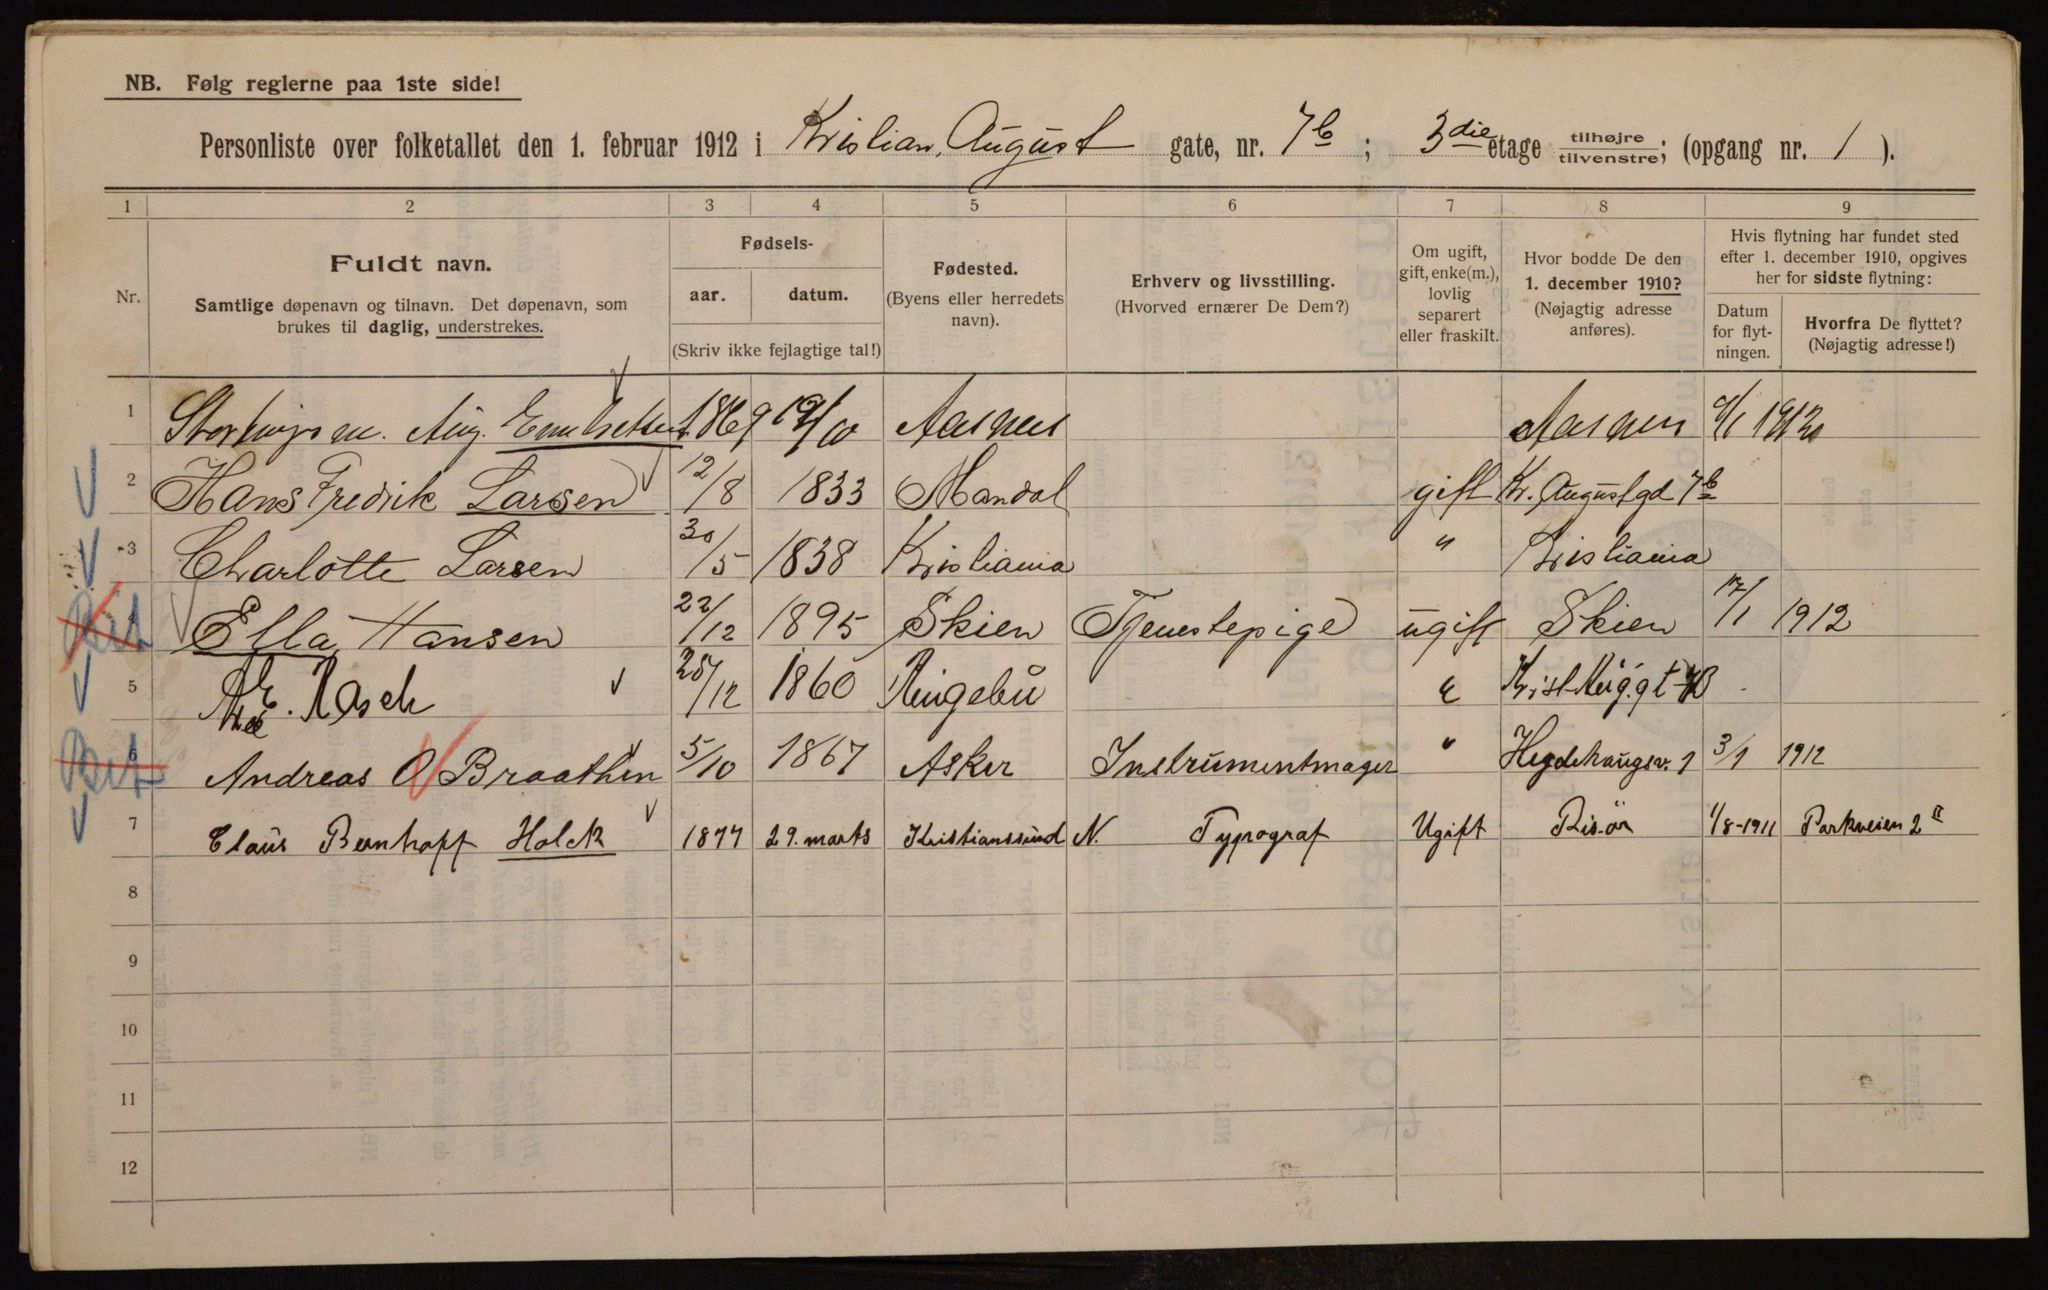 NB. Følg reglerne paa 1ste side!
Personliste over folketallet den 1. februar 1912 i Kristian August gate, nr. 7b ; 3die etage tilhøjre/tilvenstre; (opgang nr. 1 ).
1 2 3 4 5 6 7 8 9
Nr.
Fuldt navn.
Samtlige døpenavn og tilnavn. Det døpenavn, som
brukes til daglig, understrekes.
Fødsels-
aar. datum.
(Skriv ikke fejlagtige tal!)
Fødested.
(Byens eller herredets
navn).
Erhverv og livsstilling.
(Hvorved ernærer De Dem?)
Om ugift,
gift, enke(m.),
lovlig
separert
eller fraskilt.
Hvor bodde De den
1. december 1910?
(Nøjagtig adresse
anføres).
Hvis flytning har fundet sted
efter 1. december 1910, opgives
her for sidste flytning:
Datum
for flyt-
ningen.
Hvorfra De flyttet?
(Nøjagtig adresse!)
1 Stortingsm. Aug. 1869 19/10 Aasnes Aasnes 1912
2 Hans Fredrik Larsen 12/8 1833 Mandal gift Kr. Augustgd 7b
3 Charlotte Larsen 30/5 1838 Kristiania " Kristiania
4 Ella Hansen 22/12 1895 Skien Tjenestepige ugift Skien 17/1 1912
5 Rasch 25/12 1860 Ringebu " Krist Aug. gt 7B
6 Andreas O Braathen 5/10 1867 Asker Instrumentmager " Hegdehaugsv. 1 3/1 1912
7 Claus Bernhoff Holck 1877 29. marts Kristianssund N. Typograf Ugift Risör 1/8-1911 Parkveien 2 II
8
9
10
11
12